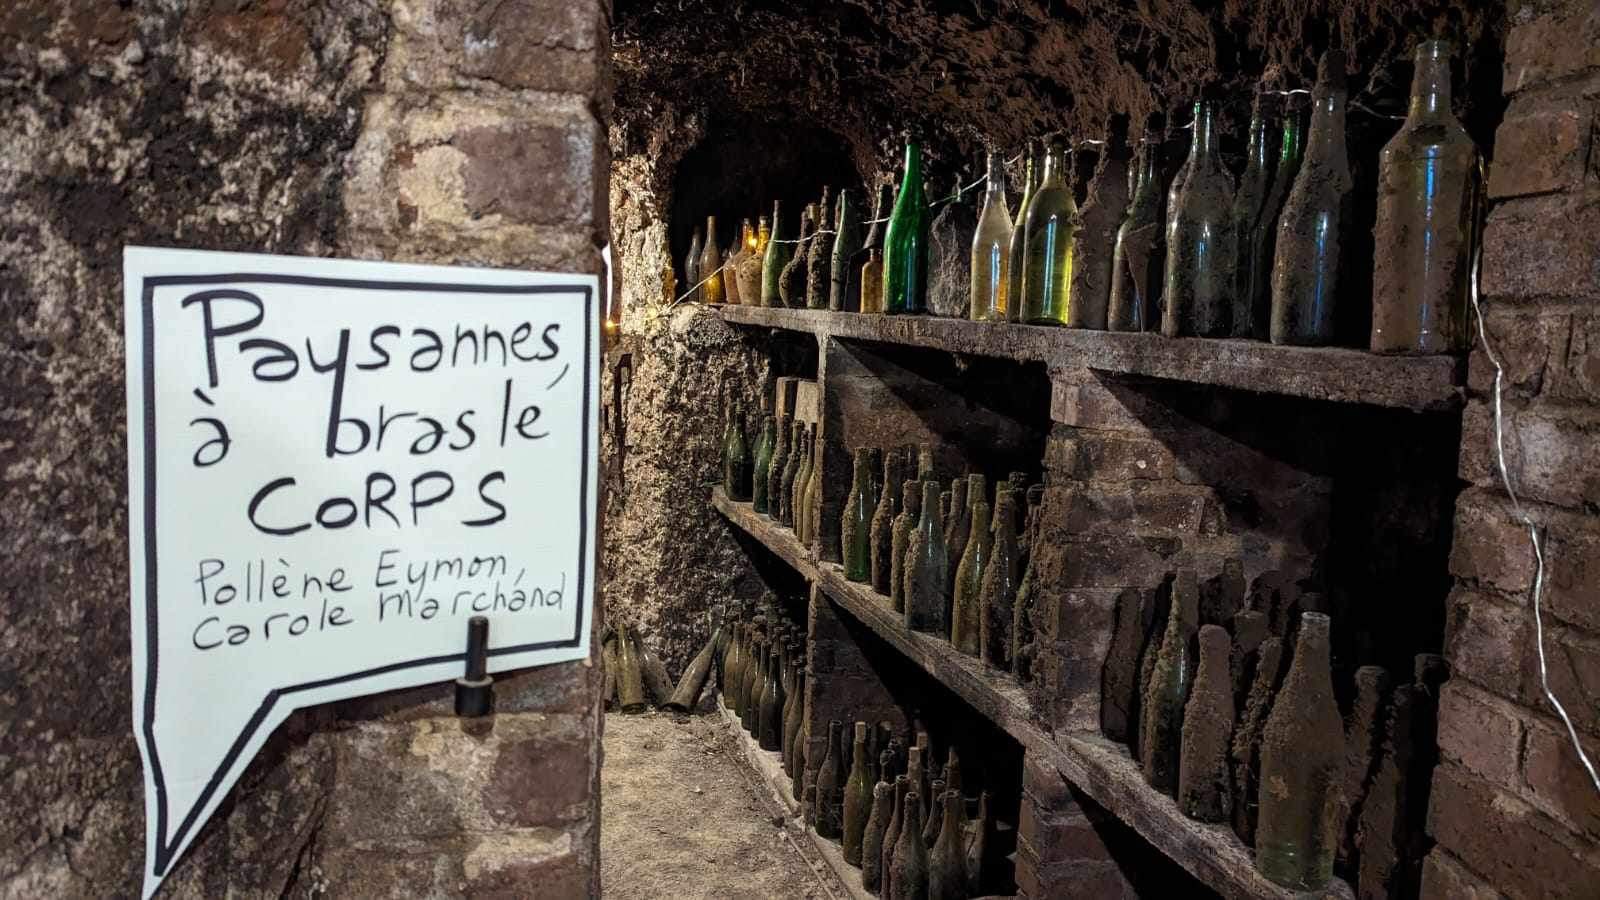 Paysannes,
à bras le
CORPS
Pollène Eymon,
Carole Marchand